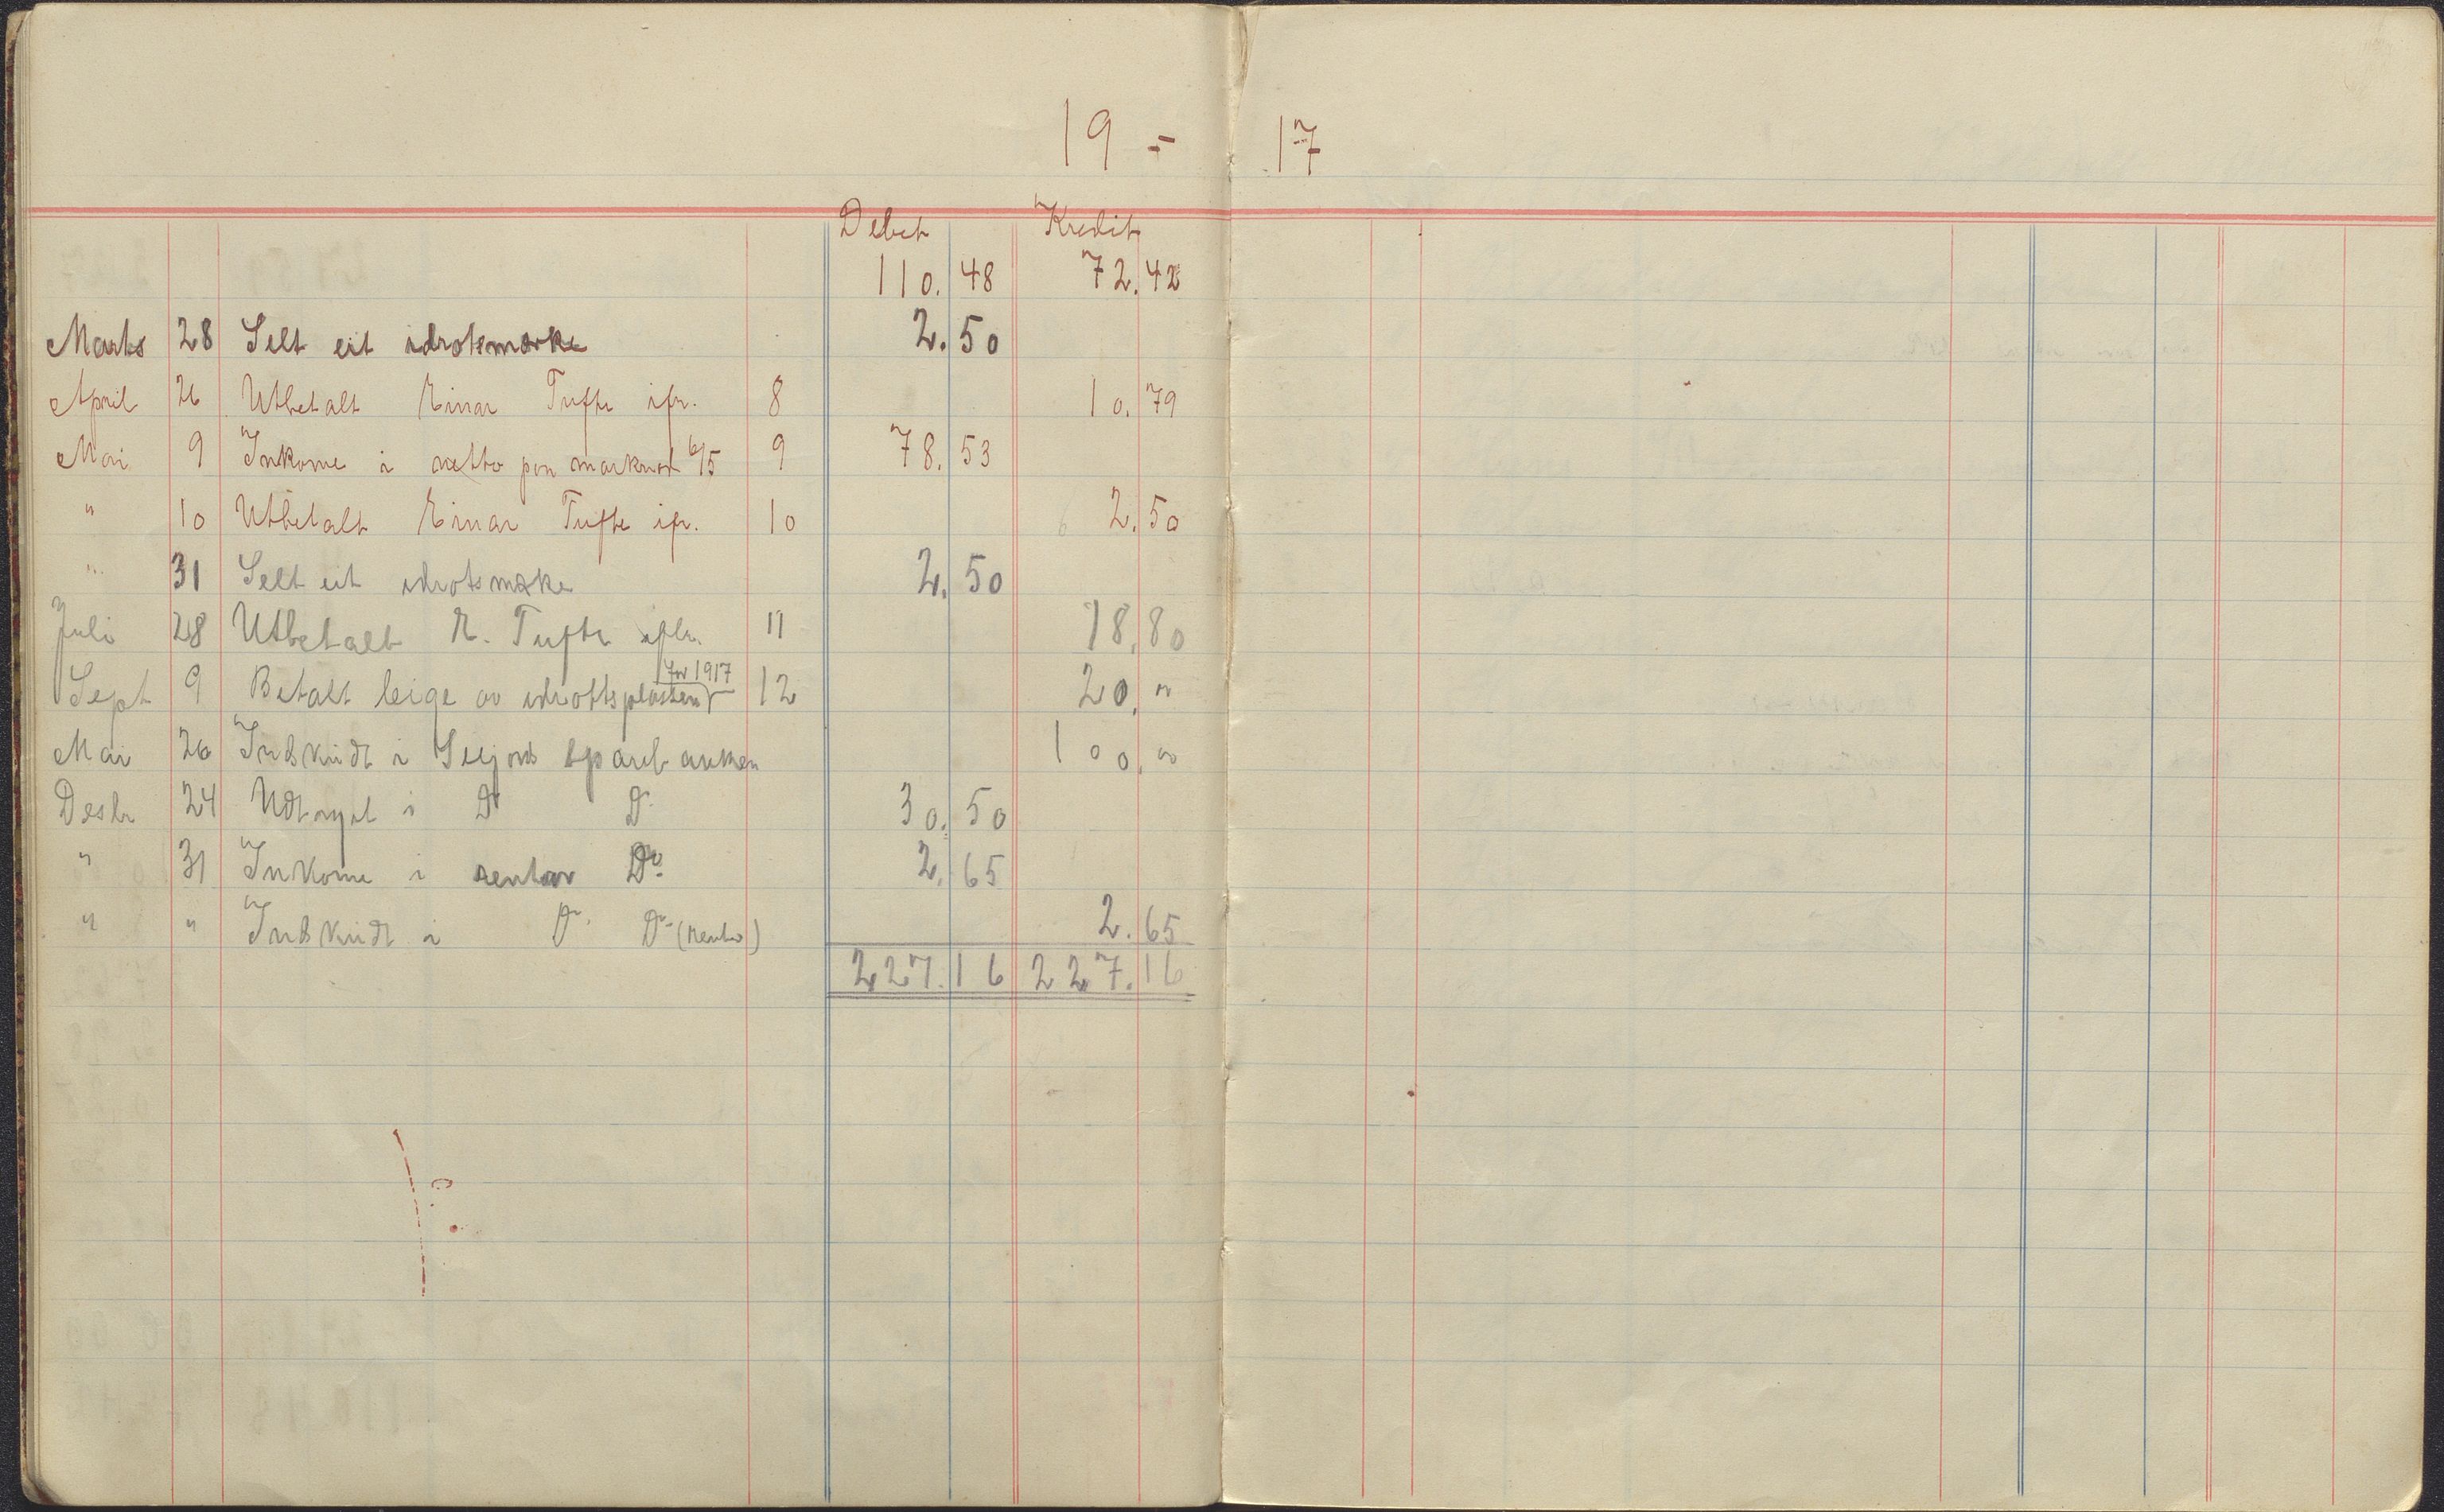 19 - 17
Debet Kredit
110. 48 72. 42
Marts 28 Selt eit idrotsmærke 2. 50
April 26 Utbetalt Einar Tufte ifr. 8 10. 79
Mai 9 Inkome i netto paa marknad 6/5 9 78. 53
" 10 Utbetalt Einar Tufte ifr. 10 2. 50
" 31 Selt eit idrotsmæke 2. 50
Juli 28 Utbetalt E. Tufte 11 18. 80
for 1917
Sept 9 Betalt leige av idrottsplassen 12 20. "
Mai 26 Indskudt i Seljord sparebanken 100. "
Desbr 24 i Do Do 30. 50
" 31 Inkome i rentar Do 2. 65
" " Indskudt i Do Do (renter) 2. 65
227. 16 227. 16